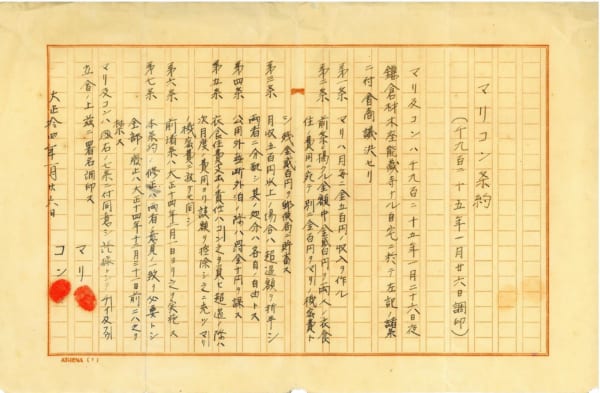 マリコン条約
（千九百二十五年一月廿六日調印）
マリ及コンハ千九百二十五年一月二十六日夜
鎌倉材木座能蔵寺ナル自宅ニ於テ左記ノ諸条
ニ付会商議決セリ
第一条 マリハ月毎ニ金五百円ノ収入ヲ作ル
第二条 前条ニ掲クル金額中金弐百円ヲ両人ノ衣食
住ノ費用ニ充テ別ニ金百円ヲマリノ機密費ト
シ残金弐百円ヲ郵便局ニ貯蓄ス
第三条 月収五百円以上ノ場合ハ超過額ヲ折半シ
両者ニ分配シ其ノ処分ハ各自ノ自由トス
第四条 公用外無断外泊ノ際ハ罰金十円ヲ課ス
第五条 衣食住費支出ノ責任ハコン之ヲ負ヒ超過ノ際ハ
次月度ノ費用ヨリ該額ヲ控除シ之ニ充ツマリ
ノ機密費ニ就テモ同シ
第六条 前諸条ハ大正十四年二月一日ヨリ之ヲ実施ス
第七条 本条約ノ修正ハ両者ノ意見ノ一致ヲ必要トシ
全部ノ廃止ハ大正十四年十二月三十一日前ニハ之ヲ
禁ス
マリ及コンハ右ノ条ニ付同意シ
立会ノ上茲ニ署名調印ス
大正拾四年一月廿六日
マリ
コン
ATHENA (1)